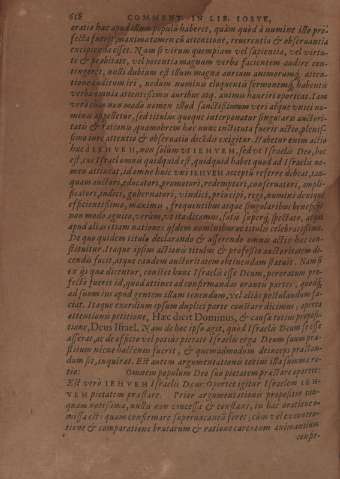 618 COMMENT. IN LIB. IOSVE,
oratio hæc apud illum populū haberet, quàm quòd à numine illo pro-
fecta foret, maximam tamen cū attentione, reuerentia & obseruantia
excipienda esset. Nam si virum quempiam vel sapientia, vel virtu-
te & probitate, vel potentia magnum verba facientem audire con-
tingeret, nulli dubium est illum magna aurium animorumq; atten-
tione auditum iri, nedum numinis eloquentis sermonemq; habentis
verba omnia attentissimis auribus atq; animis hauriri oporteat. Iam
verò cùm non modò nomen illud sanctissimum veri atque vnici nu-
minis appelletur, sed titulus quoque interponatur singularis auctori-
tatis & rationis, quamobrem hæc nunc instituta fuerit actio, plenis-
simo iure attentio & obseruatio dictis exigitur. Habetur enim actio
hæc IEHVEH, non solùm vt IEHVEH, sed vt Israelis Deo, hoc
est, vt Israel omnia quidquid est, quidquid habet quod ad Israelis no-
men attineat, id omne huic vni IEHVEH acceptū referre debeat, tan-
quam auctori, educatori, promotori, redemptori, conseruatori, ampli-
ficatori, iudici, gubernatori, vindici, principi, regi, numini denique
efficientissimo, maximis, frequentibus atque singularibus beneficiis
non modò cognito, verùm, vt ita dicamus, solis superq; spectato, atque
apud alias etiam nationes iisdem nominibus ac titulis celeberrimo.
De quo quidem titulo declarando & asserendo omnis actio hæc con-
stituitur. Itaque ipsius actionis titulus & professio auctoritatem di-
cendis facit, atque eandem auctoritatem obtinendam statuit. Nam si
ex iis quæ dicentur, constet hunc Israelis esse Deum, peroratum pro-
fecto fuerit id, quod attinet ad confirmandas orantis partes, quodq;
ad summum apud gentem illam tenendum, vel alias postulandum fa-
ciat. Itaque exordium ipsum duplici parte constare dicimus, operta
attentionis petitione, Hæc dicit Dominus, & causæ totius proposi-
tione, Deus Israel. Nam de hoc ipso agit, quòd Israelis Deum se esse
asserat, ac de officio vel potiùs pietate Israelis erga Deum suum præ-
stitum nécne hactenus fuerit, & quemadmodum deinceps præstan-
dum sit, inquirat. Est autem argumentationis totius illa summa ra-
tio: Omnem populum Deo suo pietatem præstare oportet:
Est verò IEHVEH Israelis Deus: Oportet igitur Israelem IEH-
VEH pietatem præstare. Prior argumentationis propositio vt-
quam notissima, nulli non concessa & constans, in hac oratione o-
missa est: quam confirmare superuacaneū foret: cùm vel ex contra-
tione & comparatione brutarum & ratione carentium animantium
compr-